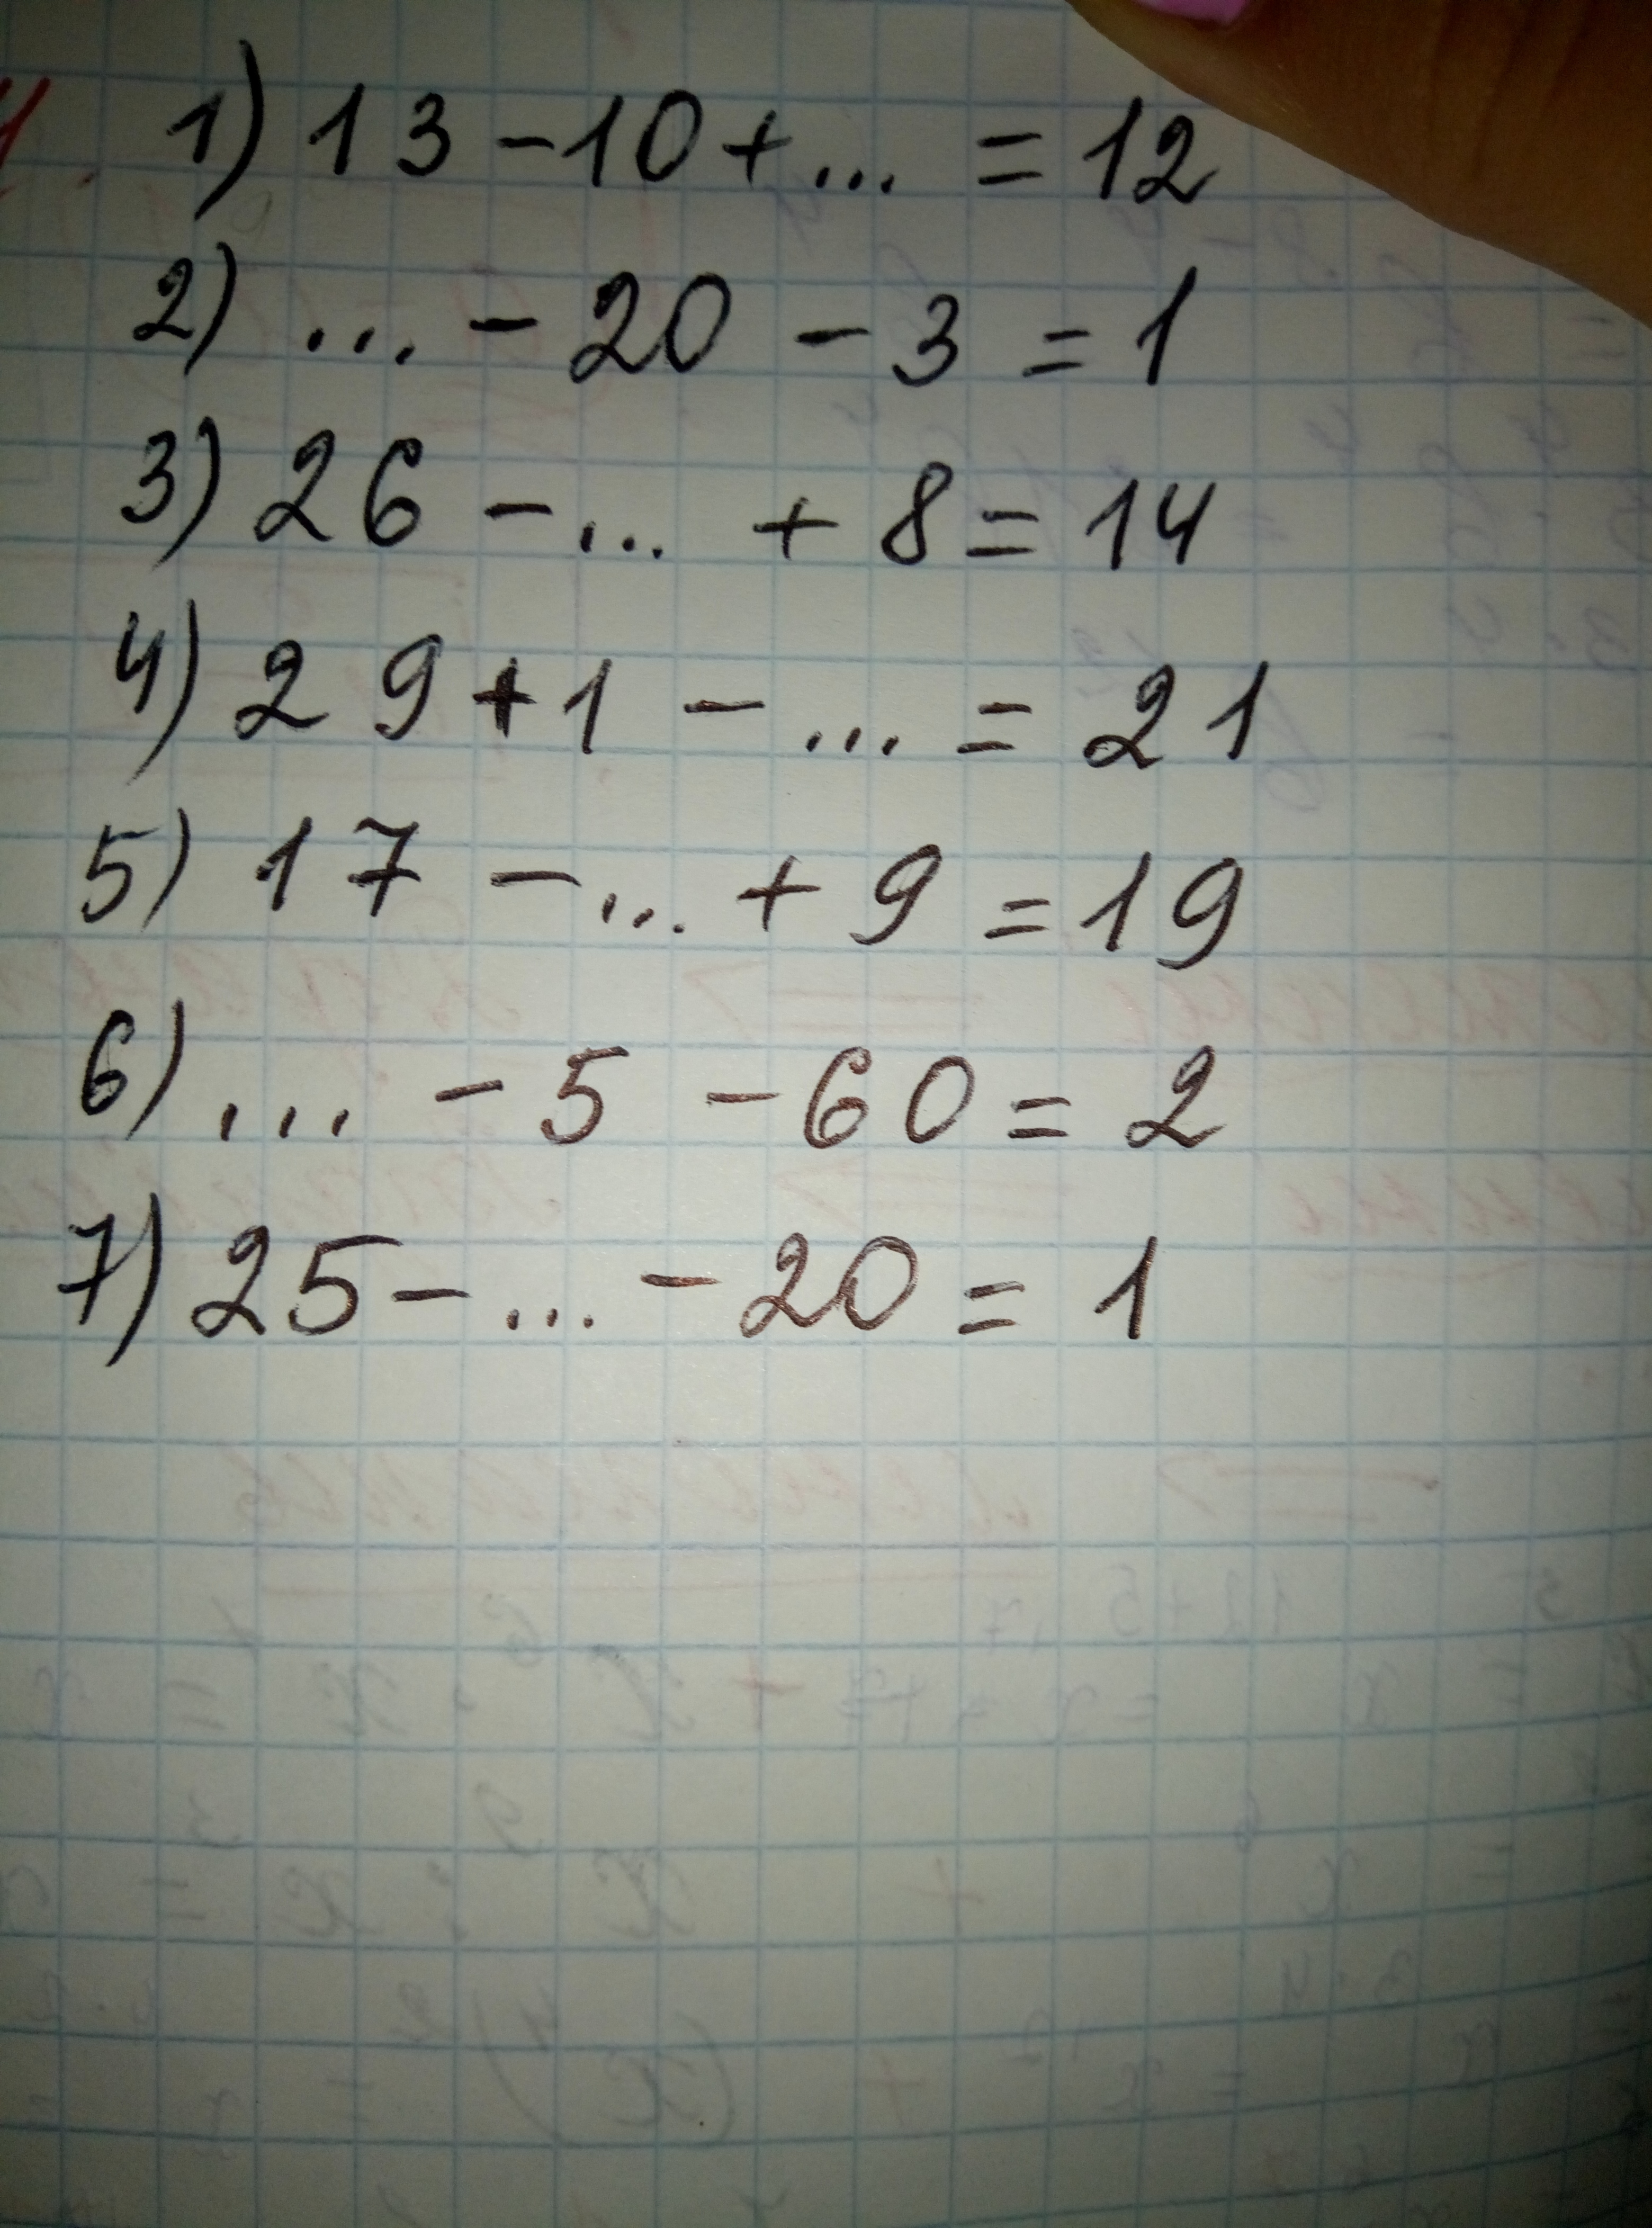 1) 13 - 10 + ... = 12
2) ... - 20 - 3 = 1
3) 26 - ... + 8 = 14
4) 29 + 1 - ... = 21
5) 17 - ... + 9 = 19
6) ... - 5 - 60 = 2
7) 25 - ... - 20 = 1